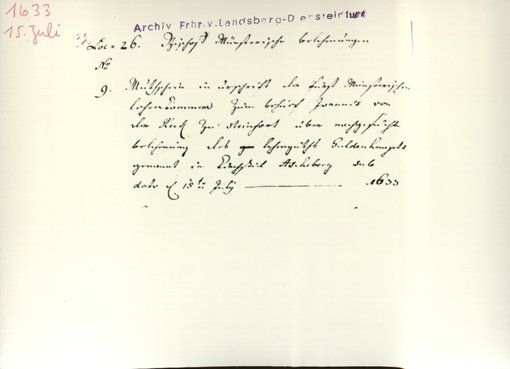 1633
15. Juli
Archiv Frhr.v.Landsberg-D ensteinfurt
Loc. 26. Bischof Münsterische belehnungen
No
9. Muthschein in urschrift der Fürst Münsterischen
lehenkammer zum behuf Joannis von
der Reck zu Steinfort über nachgesuchte
belehnung des lehnguths Guldenkamps
genannt in Kirchspiel Ascheberg sub
dato 15ten July 1633